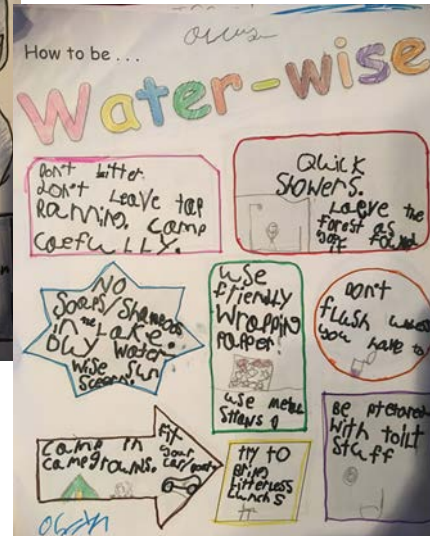 How to be ...
Water-wise
Don't litter.
Don't Leave tap
Running. Camp
Caefully.
Quick
Showers.
Leave the
forest as
you found
NO
Soaps/Shampoos
in the Lake.
Buy Water-
Wise sun
screen.
use
friendly
Wrapping
papper.
use metal
Straws
Don't
flush unless
you have to
Camp in
campgrowns.
Fix
your
car/boat
try to
Bring
litterless
Lunchs
Be prepared
with toilt
Stuff